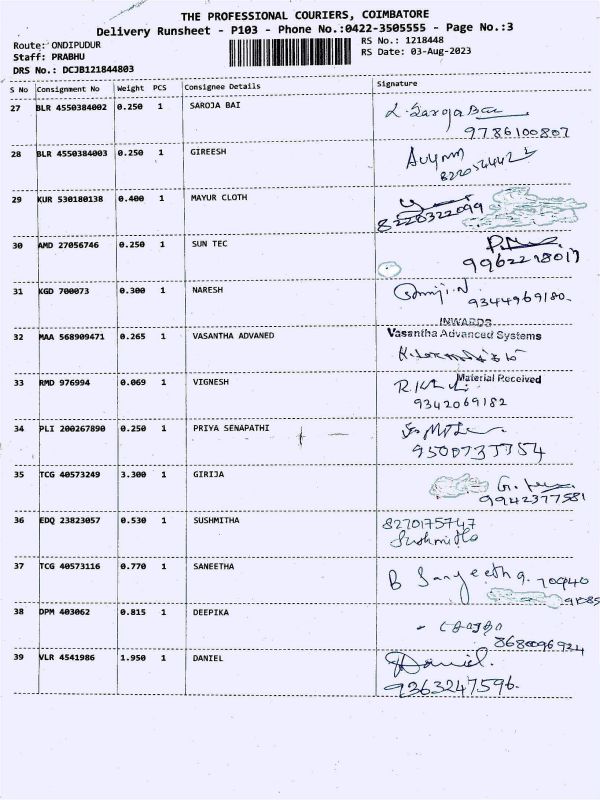 THE PROFESSIONAL COURIERS, COIMBATORE
Delivery Runsheet - P103 - Phone No.:0422-3505555 - Page No.:3
Route: ONDIPUDUR
RS No.: 1218448
Staff: PRABHU
RS Date: 03-Aug-2023
DRS No.: DCJB121844803
S No Consignment No Weight PCS Consignee Details Signature
27 BLR 4550384002 0.250 1 SAROJA BAI
9786100807
28 BLR 4550384003 0.250 1 GIREESH
29 KUR 530180138 0.400 1 MAYUR CLOTH
8220322099
30 AMD 27056746 0.250 1 SUN TEC
9962218017
31 KGD 700073 0.300 1 NARESH
9344969180
INWARDS
32 MAA 568909471 0.265 1 VASANTHA ADVANED Vasantha Advanced Systems
33 RMD 976994 0.069 1 VIGNESH Material Received
9342069182
34 PLI 200267890 0.250 1 PRIYA SENAPATHI
35 TCG 40573249 3.300 1 GIRIJA
9942377581
36 EDQ 23823057 0.530 1 SUSHMITHA 8270175747
Sushmitha
37 TCG 40573116 0.770 1 SANEETHA
B Sangeetha
38 DPM 403062 0.815 1 DEEPIKA
8680096924
39 VLR 4541986 1.950 1 DANIEL Daniel.
9363247596.